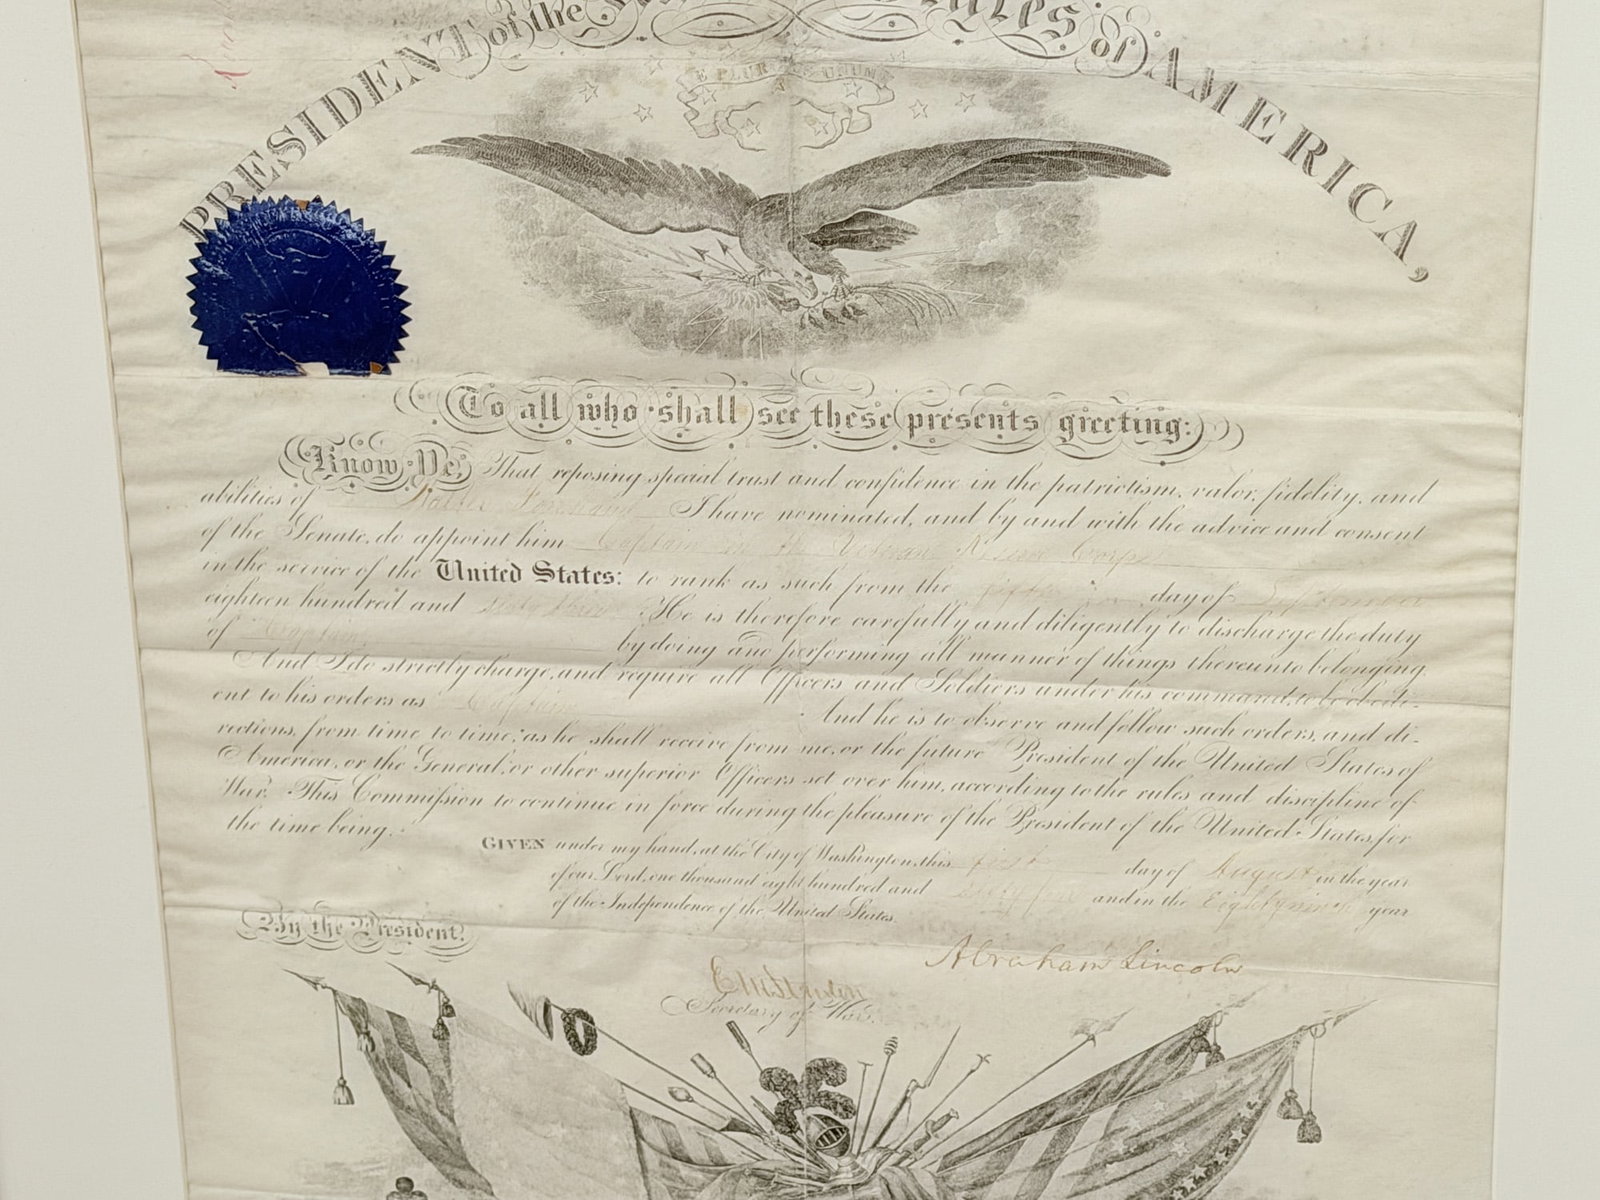 PRESIDENT of the States of AMERICA,
E PLURIBUS UNUM
To all who shall see these presents greeting:
Know Ye, That reposing special trust and confidence in the patriotism, valor, fidelity, and
abilities of I have nominated, and by and with the advice and consent
of the Senate, do appoint him Captain in the Veteran Reserve Corps
in the service of the United States: to rank as such from the day of September
eighteen hundred and sixty three He is therefore carefully and diligently to discharge the duty
of Captain by doing and performing all manner of things thereunto belonging.
And I do strictly charge, and require all Officers and Soldiers under his command, to be obedi-
ent to his orders as Captain And he is to observe and follow such orders, and di-
rections, from time to time, as he shall receive from me, or the future President of the United States of
America, or the General, or other superior Officers set over him, according to the rules and discipline of
War. This Commission to continue in force during the pleasure of the President of the United States, for
the time being.
GIVEN under my hand, at the City of Washington, this first day of August in the year
of our Lord, one thousand eight hundred and sixty four and in the Eighty ninth year
of the Independence of the United States.
By the President.
Abraham Lincoln
Edwin M Stanton
Secretary of War.